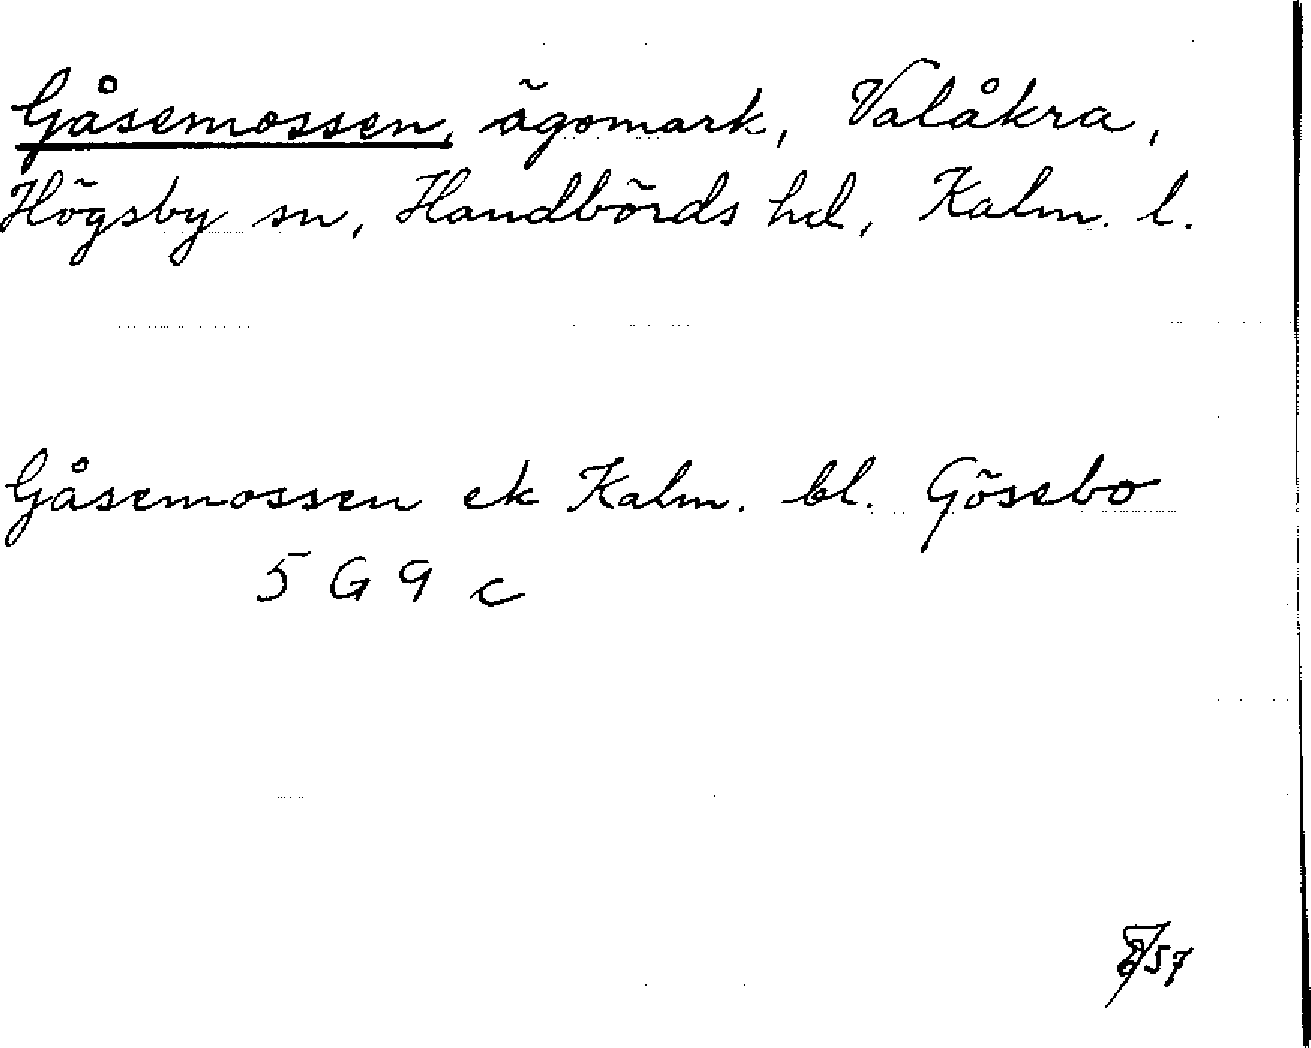 Gåsemossen, ägomark, Valåkra,
Högsby sn, Handbörds hd, Kalm. l.
Gåsemossen ek Kalm. bl. Gösebo
5 G 9 c
57